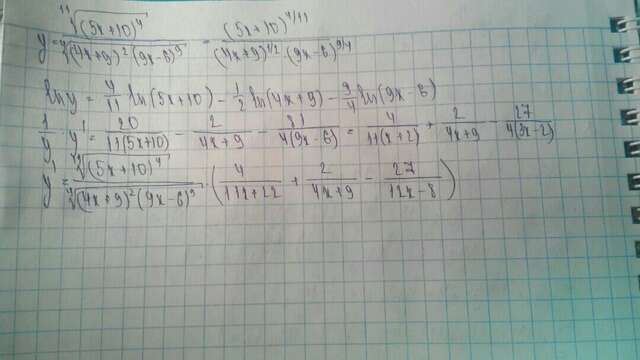 y = ¹¹√(5x+10)⁴ / ⁴√(4x+9)²(9x-6)⁹ = (5x+10)^4/11 / (4x+9)^1/2 · (9x-6)^9/4
ln y = 4/11 ln(5x+10) - 1/2 ln(4x+9) - 9/4 ln(9x-6)
1/y · y' = 20/11(5x+10) - 2/4x+9 - 81/4(9x-6) = 4/11(x+2) + 2/4x+9 - 27/4(3x-2)
y' = ¹¹√(5x+10)⁴ / ⁴√(4x+9)²(9x-6)⁹ · (4/11x+22 + 2/4x+9 - 27/12x-8)